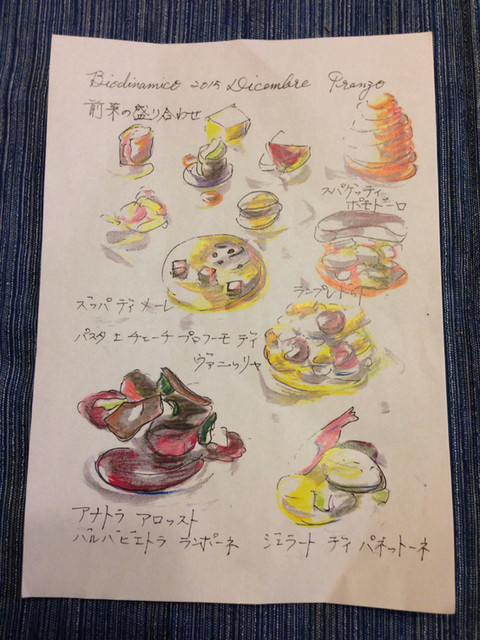 Biodinamico 2015 Dicembre Pranzo
前菜の盛り合わせ
スパゲッティ
ポモドーロ
ズッパ ディ メーレ
パスタ エ チェーチ プロフーモ ディ
ヴァニッリャ
アナトラ アロッスト
バルバビエトラ ランポーネ
ジェラート ディ パネットーネ